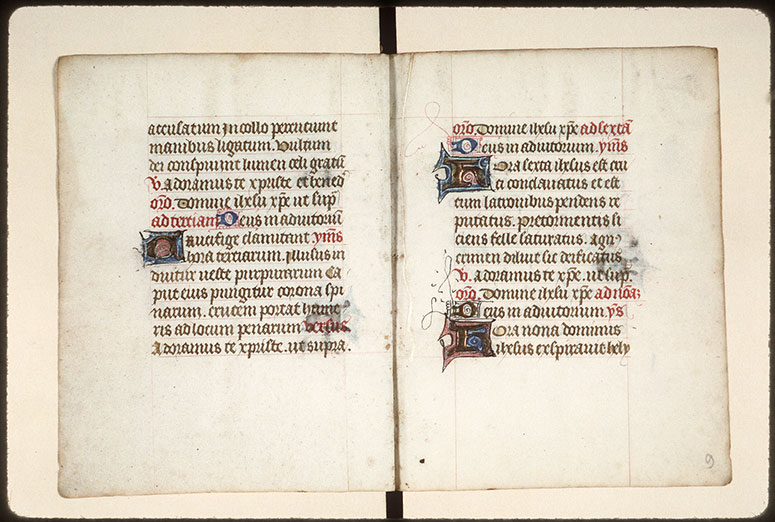 accusatum In collo percutiunt
manibus ligatum. Vultum
dei conspuunt lumen celi gratū
V. Adoramus te xpriste et bened
orō. Domine ihesu xpē ut sup̄
ad terciam Deus in adiutoriū
Crucifige clamitant ymn̄s
hora terciarum. Illusus in
duitur veste purpurarum Ca
put eius pungitur corona spi
narum. crucem portat hume
ris ad locum penarum versus
Adoramus te xpriste. ut supra.
orō. Domine ihesu xpē ad sextā
Deus in adiutorium. ymn̄s
Hora sexta ihesus est cru
ci conclavatus et est
cum latronibus pendens re
putatus. Pretormentis si
ciens felle saturatus. Agn9
crimen diluit sic deificatus
V. Adoramus te xpē. ut sup.
orō. Domine ihesu xpē ad nonā
Deus in adiutorium. ys
Hora nona dominus
ihesus expiravit hely
9